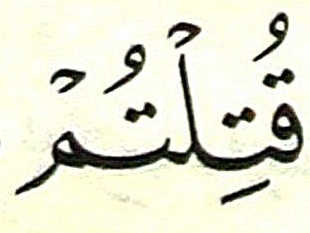 قُتِلْتُمْ